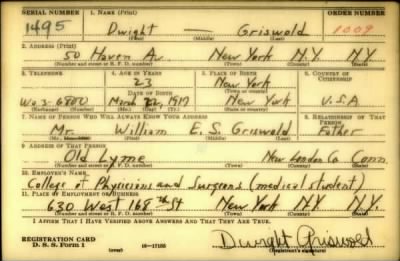 SERIAL NUMBER 1. NAME (Print) ORDER NUMBER
1495 Dwight — Griswold 1009
(First) (Middle) (Last)
2. ADDRESS (Print)
50 Haven Av. New York N.Y. N.Y.
(Number and street or R. F. D. number) (Town) (County) (State)
3. TELEPHONE 4. AGE IN YEARS 5. PLACE OF BIRTH 6. COUNTRY OF CITIZENSHIP
23 New York
DATE OF BIRTH (Town or county)
Wa 3-6800 March 22, 1917 New York U.S.A
(Exchange) (Number) (Mo.) (Day) (Yr.) (State or country)
7. NAME OF PERSON WHO WILL ALWAYS KNOW YOUR ADDRESS 8. RELATIONSHIP OF THAT PERSON
Mr. William E. S. Griswold Father
(Mr., Mrs., Miss) (First) (Middle) (Last)
9. ADDRESS OF THAT PERSON
Old Lyme New London Co Conn.
(Number and street or R. F. D. number) (Town) (County) (State)
10. EMPLOYER'S NAME
College of Physicians and Surgeons (medical student)
11. PLACE OF EMPLOYMENT OR BUSINESS
630 West 168th St New York N.Y. N.Y.
(Number and street or R. F. D. number) (Town) (County) (State)
I AFFIRM THAT I HAVE VERIFIED ABOVE ANSWERS AND THAT THEY ARE TRUE.
REGISTRATION CARD Dwight Griswold
D. S. S. Form 1 (over) 16—17105 (Registrant's signature)